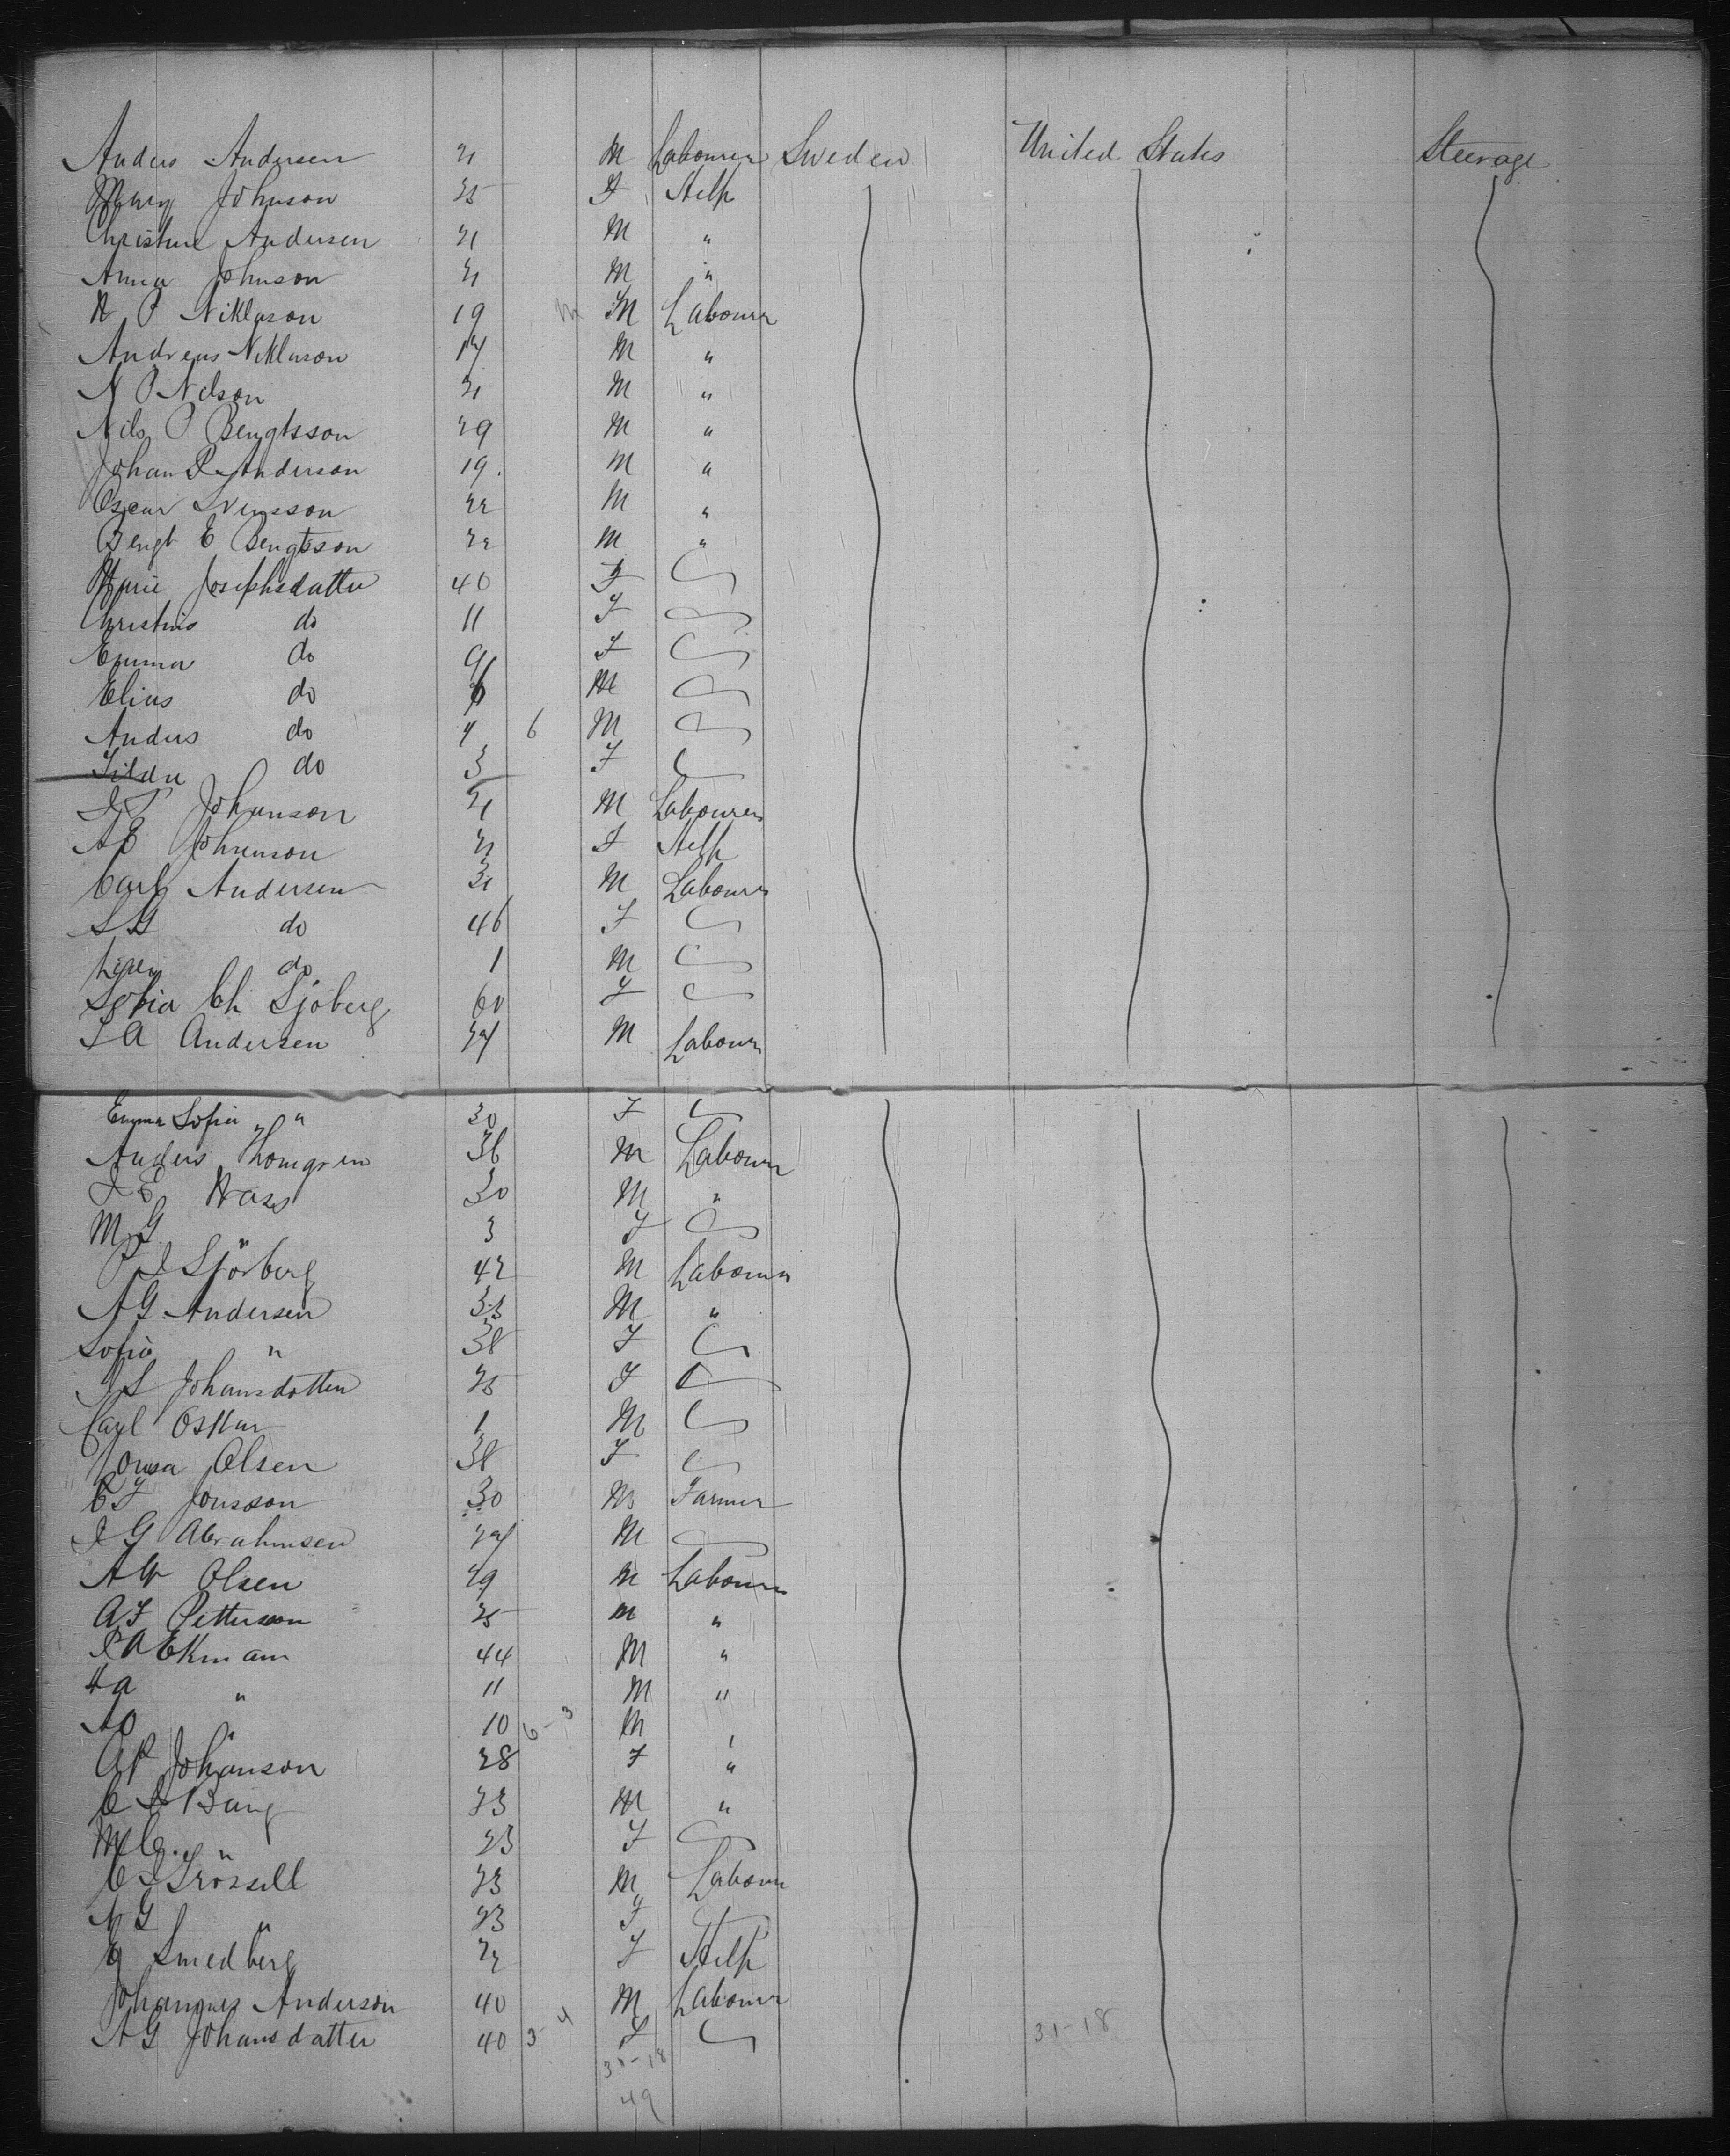 Anders Andersen 21 M Labourer Sweden United States Steerage
Mary Johnson 25 F Help
Christine Andersen 21 M "
Anna Johnson 21 M "
A P Niklason 19 M Labourer
Andreas Niklason 17 M "
N P Nilson 21 M "
Nils P Bengtsson 29 M "
Johan P Anderson 19. M "
Oscar Svensson 22 M "
Bengt E Bengtsson 22 M "
Marie Josephsdatter 40 F
Christina do 11 F
Emma do 9 F
Elias do M
Anders do 4 6 M
Tilda do 3 F
Johanson 21 M Labourer
A E Johnnson 21 F Help
Carl Andersen 31 M Labourer
S G do 46 F
do 1 M
Sofia Ch Sjöberg 60 F
S A Andersen 27 M Labourer
Emma Sofia " 30 F
Anders 36 M Labourer
J E Hass 30 M "
M G " 3 F
P J Sjöberg 42 M Labourer
A G Andersen 33 M "
Sofia " 38 F
J S Johansdotter 25 F
Carl Oskar 1 M
Lovisa Olsen 38 F
C F Jonsson 30 M Farmer
J G Abrahmsen 27 M
A W Olsen 29 M Labourer
A F Petterson 25 M "
P A Ekman 44 M "
A a " 11 M "
A O " 10 6-3 M "
A P Johanson 28 F "
C J Bang 23 M "
M C. " 23 F
C J Frössell 23 M Labourer
A G " 23 F
E Smedberg 22 F Help
Johannes Anderson 40 M Labourer
A G Johansdatter 40 3-4 F 31-18
31-18
49